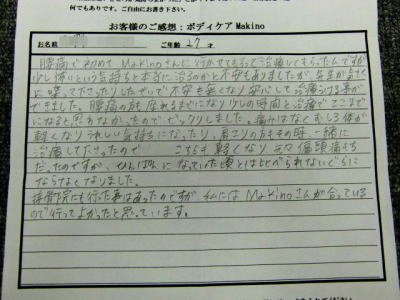 何でもあります。ご自由にお書き下さい。
お客様のご感想：ボディケア Makino
お名前 ご年齢 27 才
腰痛で初めて Makinoさんに行かせてもらって治療してもらったんですが
少し怖いという気持ちと本当に治るのかと不安もありましたが、先生が気さく
に喋って下さったりしたおかげで不安も無くなり安心して治療うける事が
できました。腰痛の方も座れるまでになり少しの時間と治療でここまで
なると思わなかったのでビックリしました。痛みはなくむしろ体が
軽くなりうれしい気持ちになったり、肩こりの方もその時、一緒に
治療して下さったので こちらも軽くなり、元々偏頭痛もち
だったのですが、ひんぱんになっていた頃とは比べられないぐらに
ならなくなりました。
接骨院にも行った事はあったのですが、私には Makinoさんが合っている
ので行ってよかったと思っています。